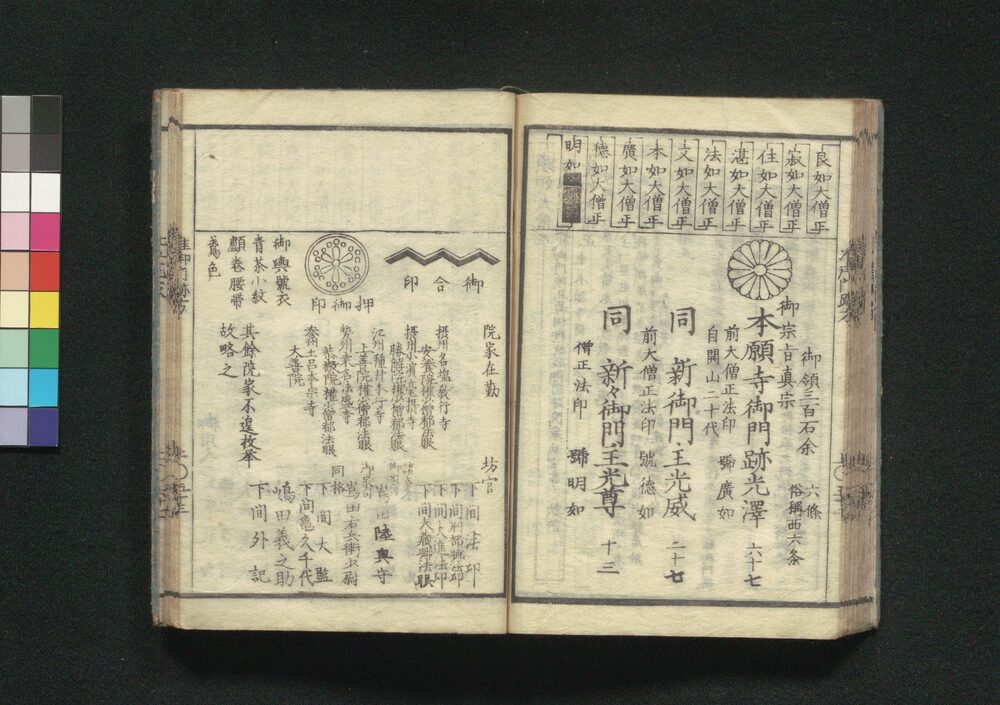 良如大僧正
寂如大僧正
住如大僧正
湛如大僧正
法如大僧正
文如大僧正
本如大僧正
廣如大僧正
徳如大僧正
明如
御領三百石余
六條
俗稱西六条
御宗旨真宗
本願寺御門跡光澤
六十七
前大僧正法印
號廣如
自開山二十代
同
新御門主光威
二十七
前大僧正法印
號徳如
同
新々御門主光尊
十三
僧正法印
號明如
御合印
押御印
御輿號衣
青茶小紋
顱巻腰帯
鳶色
院家在勤
摂州名塩教行寺
摂州小濱毫摂寺
江州種村本行寺
泰州土呂本宗寺
大善院
其餘院家不遑枚挙
故略之
坊官
下間法印
下間刑部卿法印
下間大進法印
下間大蔵卿法眼
陸奥守
同格
嶌田右兵衛少尉
下間大監
下間亀久千代
嶋田義之助
下間外記